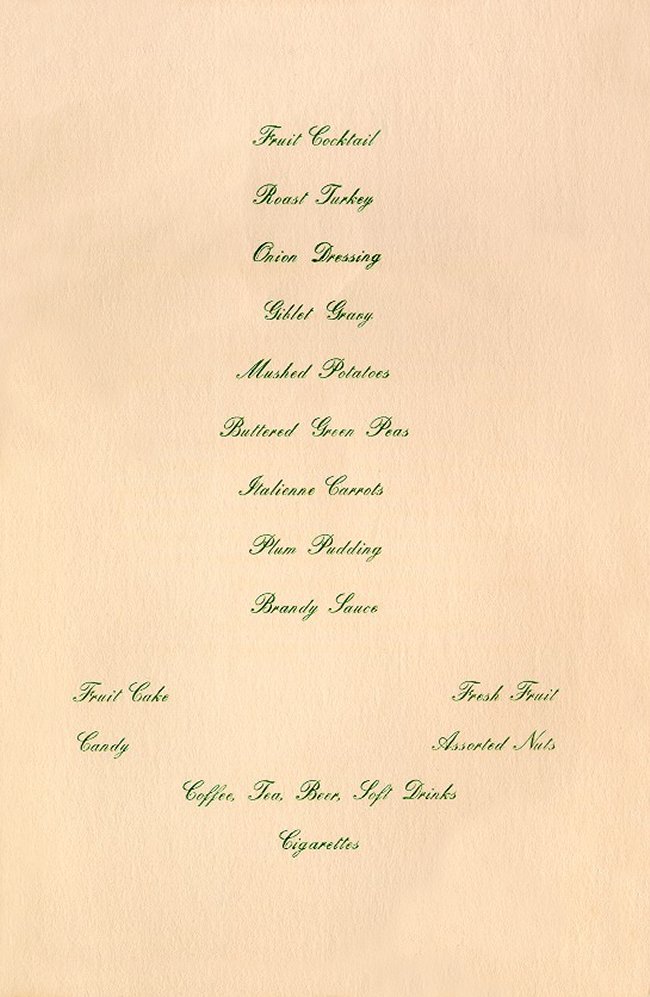 Fruit Cocktail
Roast Turkey
Onion Dressing
Giblet Gravy
Mashed Potatoes
Buttered Green Peas
Italienne Carrots
Plum Pudding
Brandy Sauce
Fruit Cake Fresh Fruit
Candy Assorted Nuts
Coffee, Tea, Beer, Soft Drinks
Cigarettes